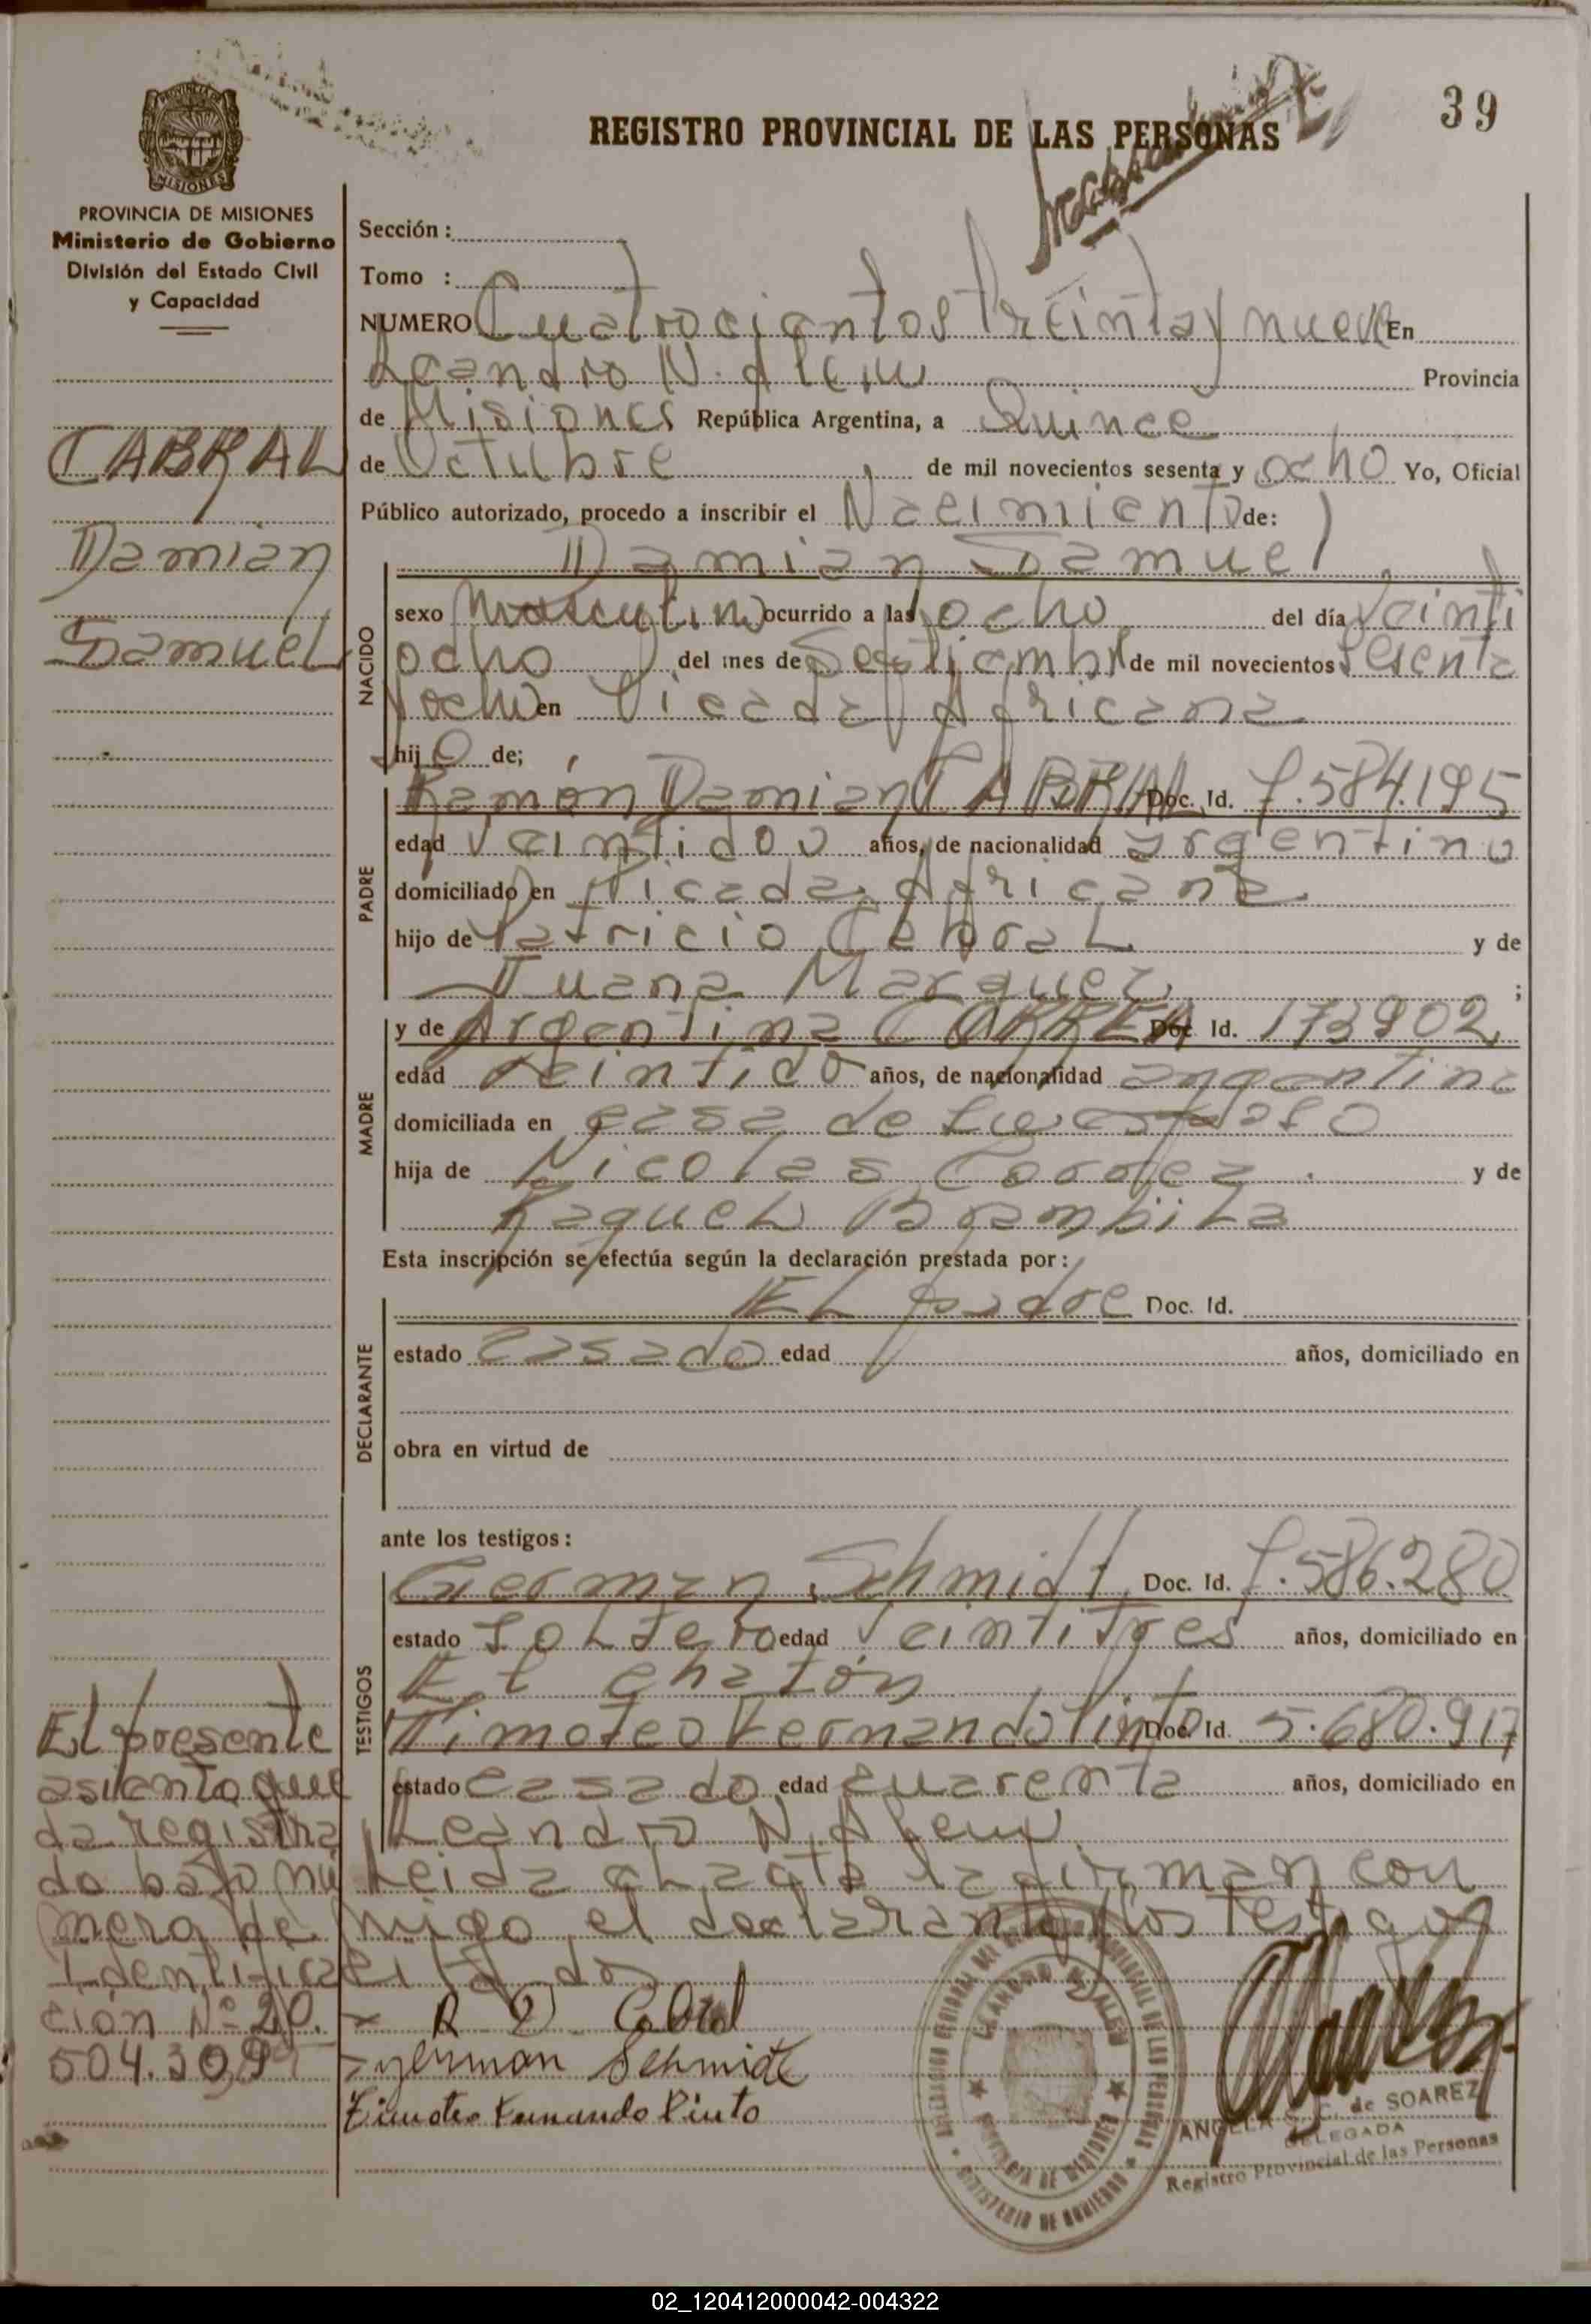 39
REGISTRO PROVINCIAL DE LAS PERSONAS
PROVINCIA DE MISIONES
Ministerio de Gobierno
División del Estado Civil
y Capacidad
CABRAL
Damian
Samuel
Sección :
Tomo :
NUMERO Cuatrocientos treinta y nueve En
Leandro N. Alem Provincia
de Misiones República Argentina, a Quince
de Octubre de mil novecientos sesenta y ocho Yo, Oficial
Público autorizado, procedo a inscribir el Nacimiento de:
Damian Samuel
NACIDO
sexo Masculino ocurrido a las ocho del día Veinti
ocho del mes de Septiembre de mil novecientos sesenta
y ocho en Picada Africana
hij o de;
PADRE
Ramón Damian CABRAL Doc. Id. 7.584.195
edad Veintidos años, de nacionalidad argentino
domiciliado en Picada Africana
hijo de Patricio Cabral y de
Juana Marquez ;
MADRE
y de Argentina CORREA Doc. Id. 173902
edad Veintido años, de nacionalidad argentina
domiciliada en casa de su esposo
hija de Nicolas Correa y de
Raquel Brambila
Esta inscripción se efectúa según la declaración prestada por:
DECLARANTE
El padre Doc. Id.
estado casado edad años, domiciliado en
obra en virtud de
ante los testigos:
TESTIGOS
German Schmidt Doc. Id. 7.586.280
estado soltero edad Veintitres años, domiciliado en
El chatón
Timoteo Fernando Pinto Doc. Id. 5.680.917
estado casado edad cuarenta años, domiciliado en
Leandro N. Alem
Leida el acta la firman con
migo el declarante y los testigos
citados
El presente
asiento que
da registra
do bajo nú
mero de
Identifica
ción Nº 20.
504.309
R D Cabral
German Schmidt
Timoteo Fernando Pinto
PROVINCIA DE MISIONES
MINISTERIO DE GOBIERNO
ANGELA S. C. de SOAREZ
DELEGADA
Registro Provincial de las Personas
02_120412000042-004322